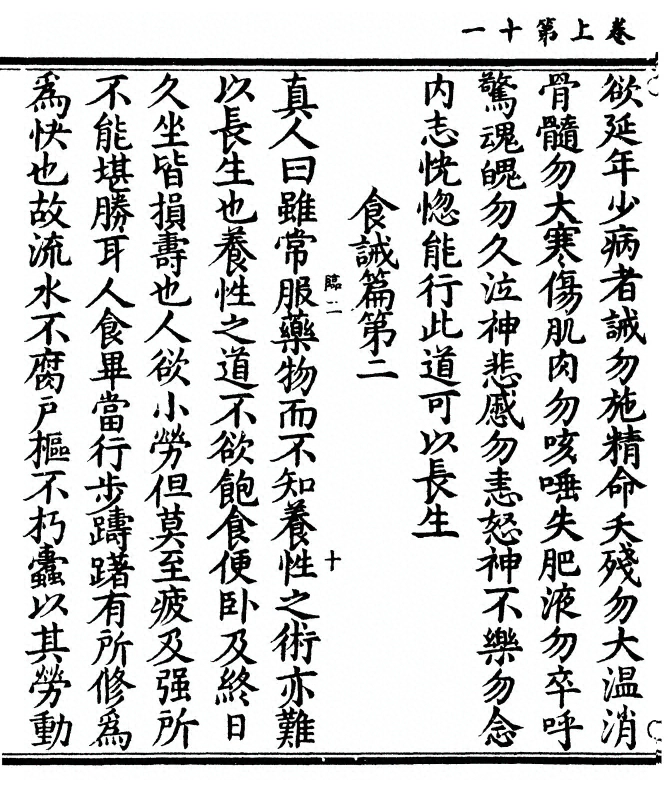 卷上第十一
欲延年少病者誡勿施精命夭殘勿大温消
骨髓勿大寒傷肌肉勿咳唾失肥液勿卒呼
驚魂魄勿久泣神悲慼勿恚怒神不樂勿念
内志恍惚能行此道可以長生
食誡篇第二
臨二
十
真人曰雖常服藥物而不知養性之術亦難
以長生也養性之道不欲飽食便卧及終日
久坐皆損壽也人欲小勞但莫至疲及强所
不能堪勝耳人食畢當行步躊躇有所修爲
爲快也故流水不腐户樞不朽蠹以其勞動